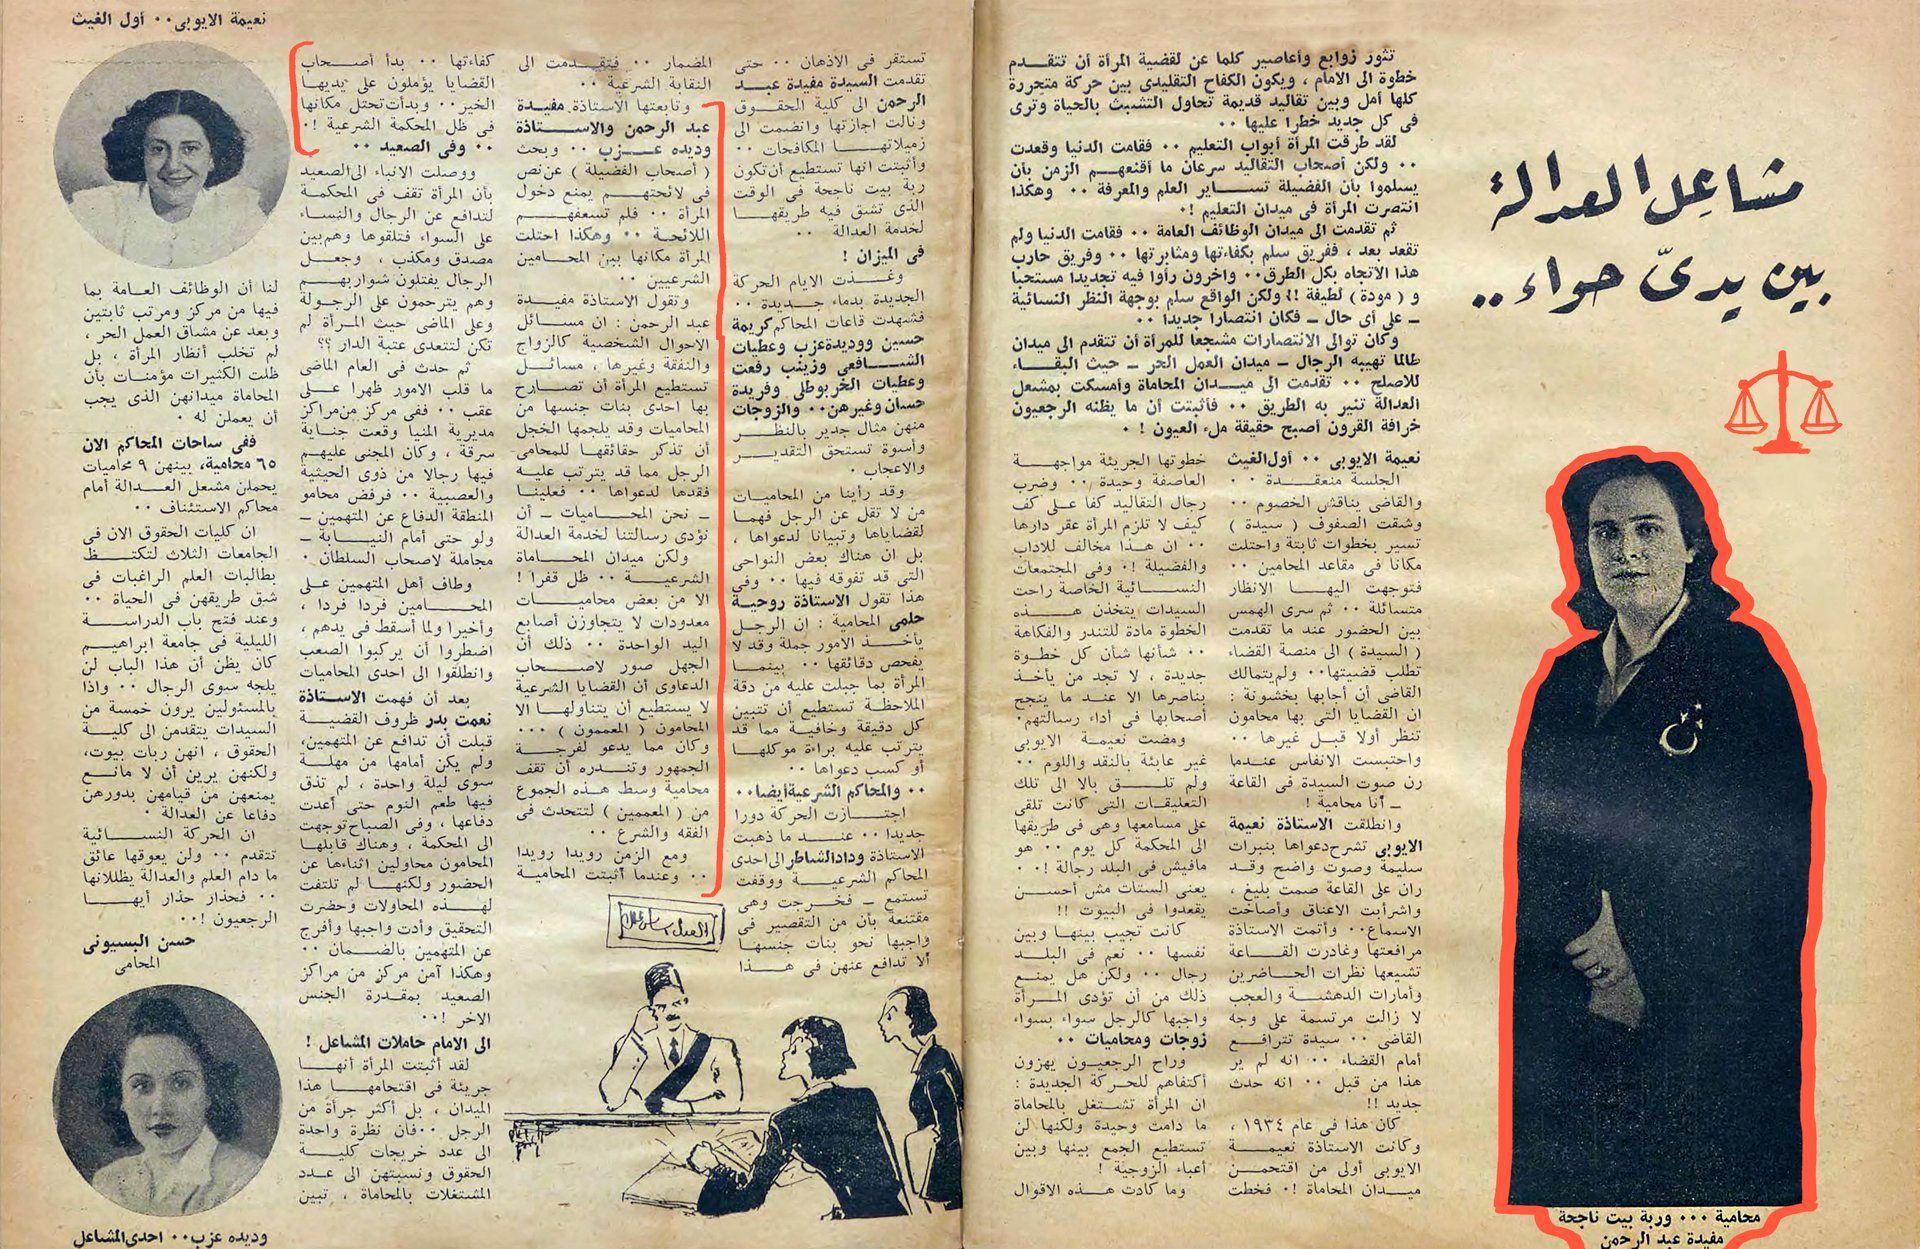 مشاعل العدالة
بين يدىّ حواء ..
تثور زوابع وأعاصير كلما عن لقضية المرأة أن تتقدم
خطوة الى الامام ، ويكون الكفاح التقليدى بين حركة متحررة
كلها أمل وبين تقاليد قديمة تحاول التشبث بالحياة وترى
فى كل جديد خطرا عليها ..
لقد طرقت المرأة أبواب التعليم .. فقامت الدنيا وقعدت
.. ولكن أصحاب التقاليد سرعان ما أقنعهم الزمن بأن
يسلموا بأن الفضيلة تساير العلم والمعرفة .. وهكذا
انتصرت المرأة فى ميدان التعليم !.
ثم تقدمت الى ميدان الوظائف العامة .. فقامت الدنيا ولم
تقعد بعد ، ففريق سلم بكفاءتها ومثابرتها .. وفريق حارب
هذا الاتجاه بكل الطرق.. وآخرون رأوا فيه تجديدا مستحبا
و ( مودة ) لطيفة !! ولكن الواقع سلم بوجهة النظر النسائية
ـ على أى حال ـ فكان انتصارا جديدا ..
وكان توالى الانتصارات مشجعا للمرأة أن تتقدم الى ميدان
طالما تهيبه الرجال ـ ميدان العمل الحر ـ حيث البقاء
للاصلح .. تقدمت الى ميدان المحاماة وأمسكت بمشعل
العدالة تنير به الطريق .. فأثبتت أن ما يظنه الرجعيون
خرافة القرون أصبح حقيقة ملء العيون ! .
نعيمة الايوبى .. أول الغيث
الجلسة منعقدة ..
والقاضى يناقش الخصوم ..
وشقت الصفوف ( سيدة )
تسير بخطوات ثابتة واحتلت
مكانا فى مقاعد المحامين ..
فتوجهت اليها الانظار
متسائلة .. ثم سرى الهمس
بين الحضور عند ما تقدمت
( السيدة ) الى منصة القضاء
تطلب قضيتها.. ولم يتمالك
القاضى أن أجابها بخشونة :
ان القضايا التى بها محامون
تنظر أولا قبل غيرها ..
واحتبست الانفاس عندما
رن صوت السيدة فى القاعة
ـ أنا محامية !
وانطلقت الاستاذة نعيمة
الايوبى تشرح دعواها بنبرات
سليمة وصوت واضح وقد
ران على القاعة صمت بليغ ،
واشرأبت الاعناق وأصاخت
الاسماع.. وأتمت الاستاذة
مرافعتها وغادرت القاعة
تشيعها نظرات الحاضرين
وأمارات الدهشة والعجب
لا زالت مرتسمة على وجه
القاضى .. سيدة تترافع
أمام القضاء .. انه لم ير
هذا من قبل .. انه حدث
جديد !!
كان هذا فى عام ١٩٣٤ ،
وكانت الاستاذة نعيمة
الايوبى أولى من اقتحمن
ميدان المحاماة !. فخطت
خطوتها الجريئة مواجهة
العاصفة وحيدة .. وضرب
رجال التقاليد كفا على كف
كيف لا تلزم المرأة عقر دارها
.. ان هذا مخالف للآداب
والفضيلة !. وفى المجتمعات
النسائية الخاصة راحت
السيدات يتخذن هذه
الخطوة مادة للتندر والفكاهة
.. شأنها شأن كل خطوة
جديدة ، لا تجد من يأخذ
بناصرها الا عند ما ينجح
أصحابها فى أداء رسالتهم.
ومضت نعيمة الايوبى
غير عابئة بالنقد واللوم ..
ولم تلق بالا الى تلك
التعليقات التى كانت تلقى
على مسامعها وهى فى طريقها
الى المحكمة كل يوم .. هو
مافيش فى البلد رجالة !..
يعنى الستات مش أحسن
يقعدوا فى البيوت !!
كانت تجيب بينها وبين
نفسها .. نعم فى البلد
رجال .. ولكن هل يمنع
ذلك من أن تؤدى المرأة
واجبها كالرجل سواء بسواء
زوجات ومحاميات ..
وراح الرجعيون يهزون
أكتافهم للحركة الجديدة :
ان المرأة تشتغل بالمحاماة
ما دامت وحيدة ولكنها لن
تستطيع الجمع بينها وبين
أعباء الزوجية !
وما كادت هذه الاقوال
محامية ... وربة بيت ناجحة
مفيدة عبد الرحمن
تستقر فى الاذهان .. حتى
تقدمت السيدة مفيدة عبد
الرحمن الى كلية الحقوق
ونالت اجازتها وانضمت الى
زميلاتها المكافحات ..
وأثبتت انها تستطيع أن تكون
ربة بيت ناجحة فى الوقت
الذى تشق فيه طريقها
لخدمة العدالة ..
فى الميزان !
وغذت الايام الحركة
الجديدة بدماء جديدة ..
فشهدت قاعات المحاكم كريمة
حسين ووديدة عزب وعطيات
الشافعى وزينب رفعت
وعطيات الخربوطلى وفريدة
حسان وغيرهن.. والزوجات
منهن مثال جدير بالنظر
وأسوة تستحق التقدير
والاعجاب .
وقد رأينا من المحاميات
من لا تقل عن الرجل فهما
لقضاياها وتبيانا لدعواها ،
بل ان هناك بعض النواحى
التى قد تفوقه فيها .. وفى
هذا تقول الاستاذة روحية
حلمى المحامية : ان الرجل
يأخذ الامور جملة وقد لا
يفحص دقائقها .. بينما
المرأة بما جبلت عليه من دقة
الملاحظة تستطيع أن تتبين
كل دقيقة وخافية مما قد
يترتب عليه براءة موكلها
أو كسب دعواها ..
.. والمحاكم الشرعية أيضا..
اجتازت الحركة دورا
جديدا .. عند ما ذهبت
الاستاذة وداد الشاطر الى احدى
المحاكم الشرعية ووقفت
تستمع ـ فخرجت وهى
مقتنعة بأن من التقصير فى
واجبها نحو بنات جنسها
ألا تدافع عنهن فى هذا
المضمار .. فتقدمت الى
النقابة الشرعية ..
وتابعتها الاستاذة مفيدة
عبد الرحمن والاستاذة
وديده عزب .. وبحث
( أصحاب الفضيلة ) عن نص
فى لائحتهم يمنع دخول
المرأة .. فلم تسعفهم
اللائحة .. وهكذا احتلت
المرأة مكانها بين المحامين
الشرعيين ..
وتقول الاستاذة مفيدة
عبد الرحمن : ان مسائل
الاحوال الشخصية كالزواج
والنفقة وغيرها ، مسائل
تستطيع المرأة أن تصارح
بها احدى بنات جنسها من
المحاميات وقد يلجمها الخجل
أن تذكر حقائقها للمحامى
الرجل مما قد يترتب عليه
فقدها لدعواها .. فعلينا
ـ نحن المحاميات ـ أن
نؤدى رسالتنا لخدمة العدالة
ولكن ميدان المحاماة
الشرعية .. ظل قفرا !
الا من بعض محاميات
معدودات لا يتجاوزن أصابع
اليد الواحدة .. ذلك أن
الجهل صور لاصحاب
الدعاوى أن القضايا الشرعية
لا يستطيع أن يتناولها الا
المحامون ( المعممون ) ...
وكان مما يدعو لفرجة
الجمهور وتندره أن تقف
محامية وسط هذه الجموع
من ( المعممين ) لتتحدث فى
الفقه والشرع ..
ومع الزمن رويدا رويدا
.. وعندما أثبتت المحامية
العدل أساس الملك
كفاءتها .. بدأ أصحاب
القضايا يؤملون على يديها
الخير.. وبدأت تحتل مكانها
فى ظل المحكمة الشرعية !.
.. وفى الصعيد ..
ووصلت الانباء الى الصعيد
بأن المرأة تقف فى المحكمة
لتدافع عن الرجال والنساء
على السواء فتلقوها وهم بين
مصدق ومكذب ، وجعل
الرجال يفتلون شواربهم
وهم يترحمون على الرجولة
وعلى الماضى حيث المرأة لم
تكن لتتعدى عتبة الدار ؟؟
ثم حدث فى العام الماضى
ما قلب الامور ظهرا على
عقب .. ففى مركز من مراكز
مديرية المنيا وقعت جناية
سرقة ، وكان المجنى عليهم
فيها رجالا من ذوى الحيثية
والعصبية .. فرفض محامو
المنطقة الدفاع عن المتهمين ـ
ولو حتى أمام النيابة ـ
مجاملة لاصحاب السلطان .
وطاف أهل المتهمين على
المحامين فردا فردا ،
وأخيرا ولما أسقط فى يدهم ،
اضطروا أن يركبوا الصعب
وانطلقوا الى احدى المحاميات
بعد أن فهمت الاستاذة
نعمت بدر ظروف القضية
قبلت أن تدافع عن المتهمين،
ولم يكن أمامها من مهلة
سوى ليلة واحدة ، لم تذق
فيها طعم النوم حتى أعدت
دفاعها ، وفى الصباح توجهت
الى المحكمة ، وهناك قابلها
المحامون محاولين اثناءها عن
الحضور ولكنها لم تلتفت
لهذه المحاولات وحضرت
التحقيق وأدت واجبها وأفرج
عن المتهمين بالضمان ..
وهكذا آمن مركز من مراكز
الصعيد بمقدرة الجنس
الاخر !..
الى الامام حاملات المشاعل !
لقد أثبتت المرأة أنها
جريئة فى اقتحامها هذا
الميدان ، بل أكثر جرأة من
الرجل ..فان نظرة واحدة
الى عدد خريجات كلية
الحقوق ونسبتهن الى عدد
المشتغلات بالمحاماة ، تبين
نعيمة الايوبى .. أول الغيث
لنا أن الوظائف العامة بما
فيها من مركز ومرتب ثابتين
وبعد عن مشاق العمل الحر ،
لم تخلب أنظار المرأة ، بل
ظلت الكثيرات مؤمنات بأن
المحاماة ميدانهن الذى يجب
أن يعملن له .
ففى ساحات المحاكم الان
٦٥ محامية، بينهن ٩ محاميات
يحملن مشعل العدالة أمام
محاكم الاستئناف ..
ان كليات الحقوق الان فى
الجامعات الثلاث لتكتظ
بطالبات العلم الراغبات فى
شق طريقهن فى الحياة ..
وعند فتح باب الدراسة
الليلية فى جامعة ابراهيم
كان يظن أن هذا الباب لن
يلجه سوى الرجال .. واذا
بالمسئولين يرون خمسة من
السيدات يتقدمن الى كلية
الحقوق ، انهن ربات بيوت،
ولكنهن يرين أن لا مانع
يمنعهن من قيامهن بدورهن
دفاعا عن العدالة .
ان الحركة النسائية
تتقدم .. ولن يعوقها عائق
ما دام العلم والعدالة يظللانها
.. فحذار حذار أيها
الرجعيون !..
حسن البسيونى
المحامى
وديده عزب.. احدى المشاعل